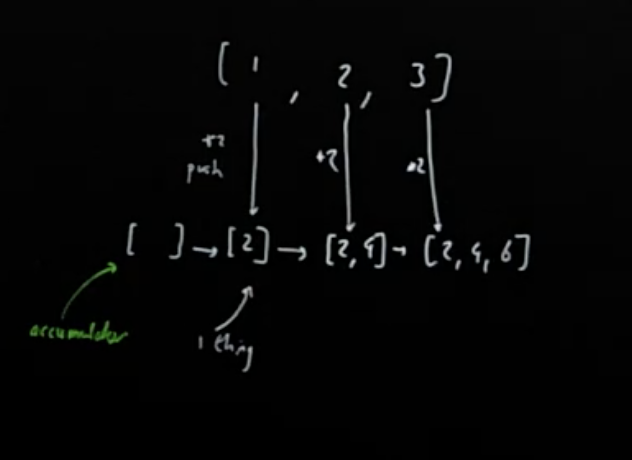 [ 1 , 2 , 3 ]
*2
push
*2
*2
[ ] → [2] → [2,4] → [2, 4, 6]
accumulator
1 thing